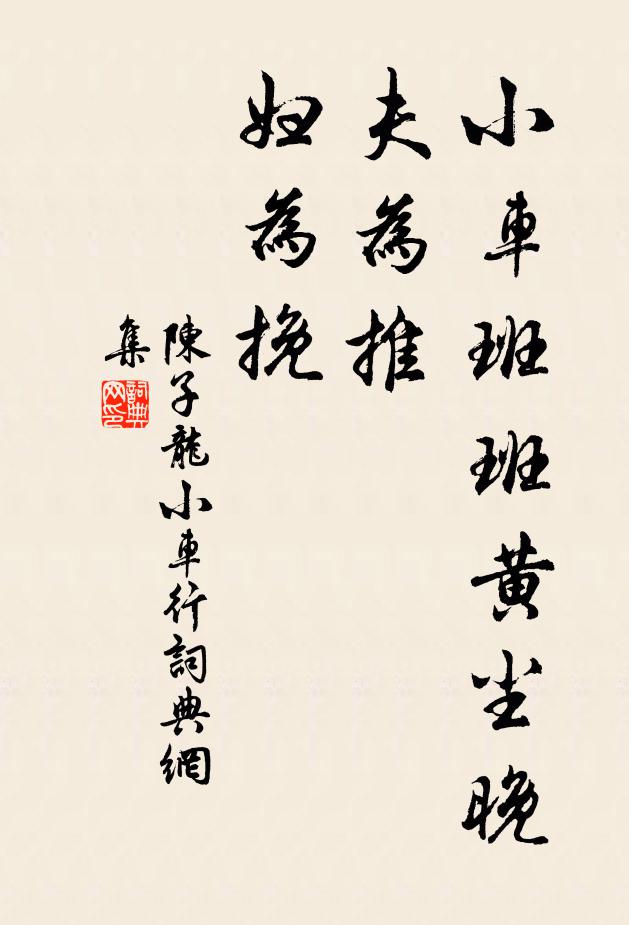 小車班班黄尘晚
夫為推
妇為挽
陳子龍小車行詞典網
集
詞典
网印